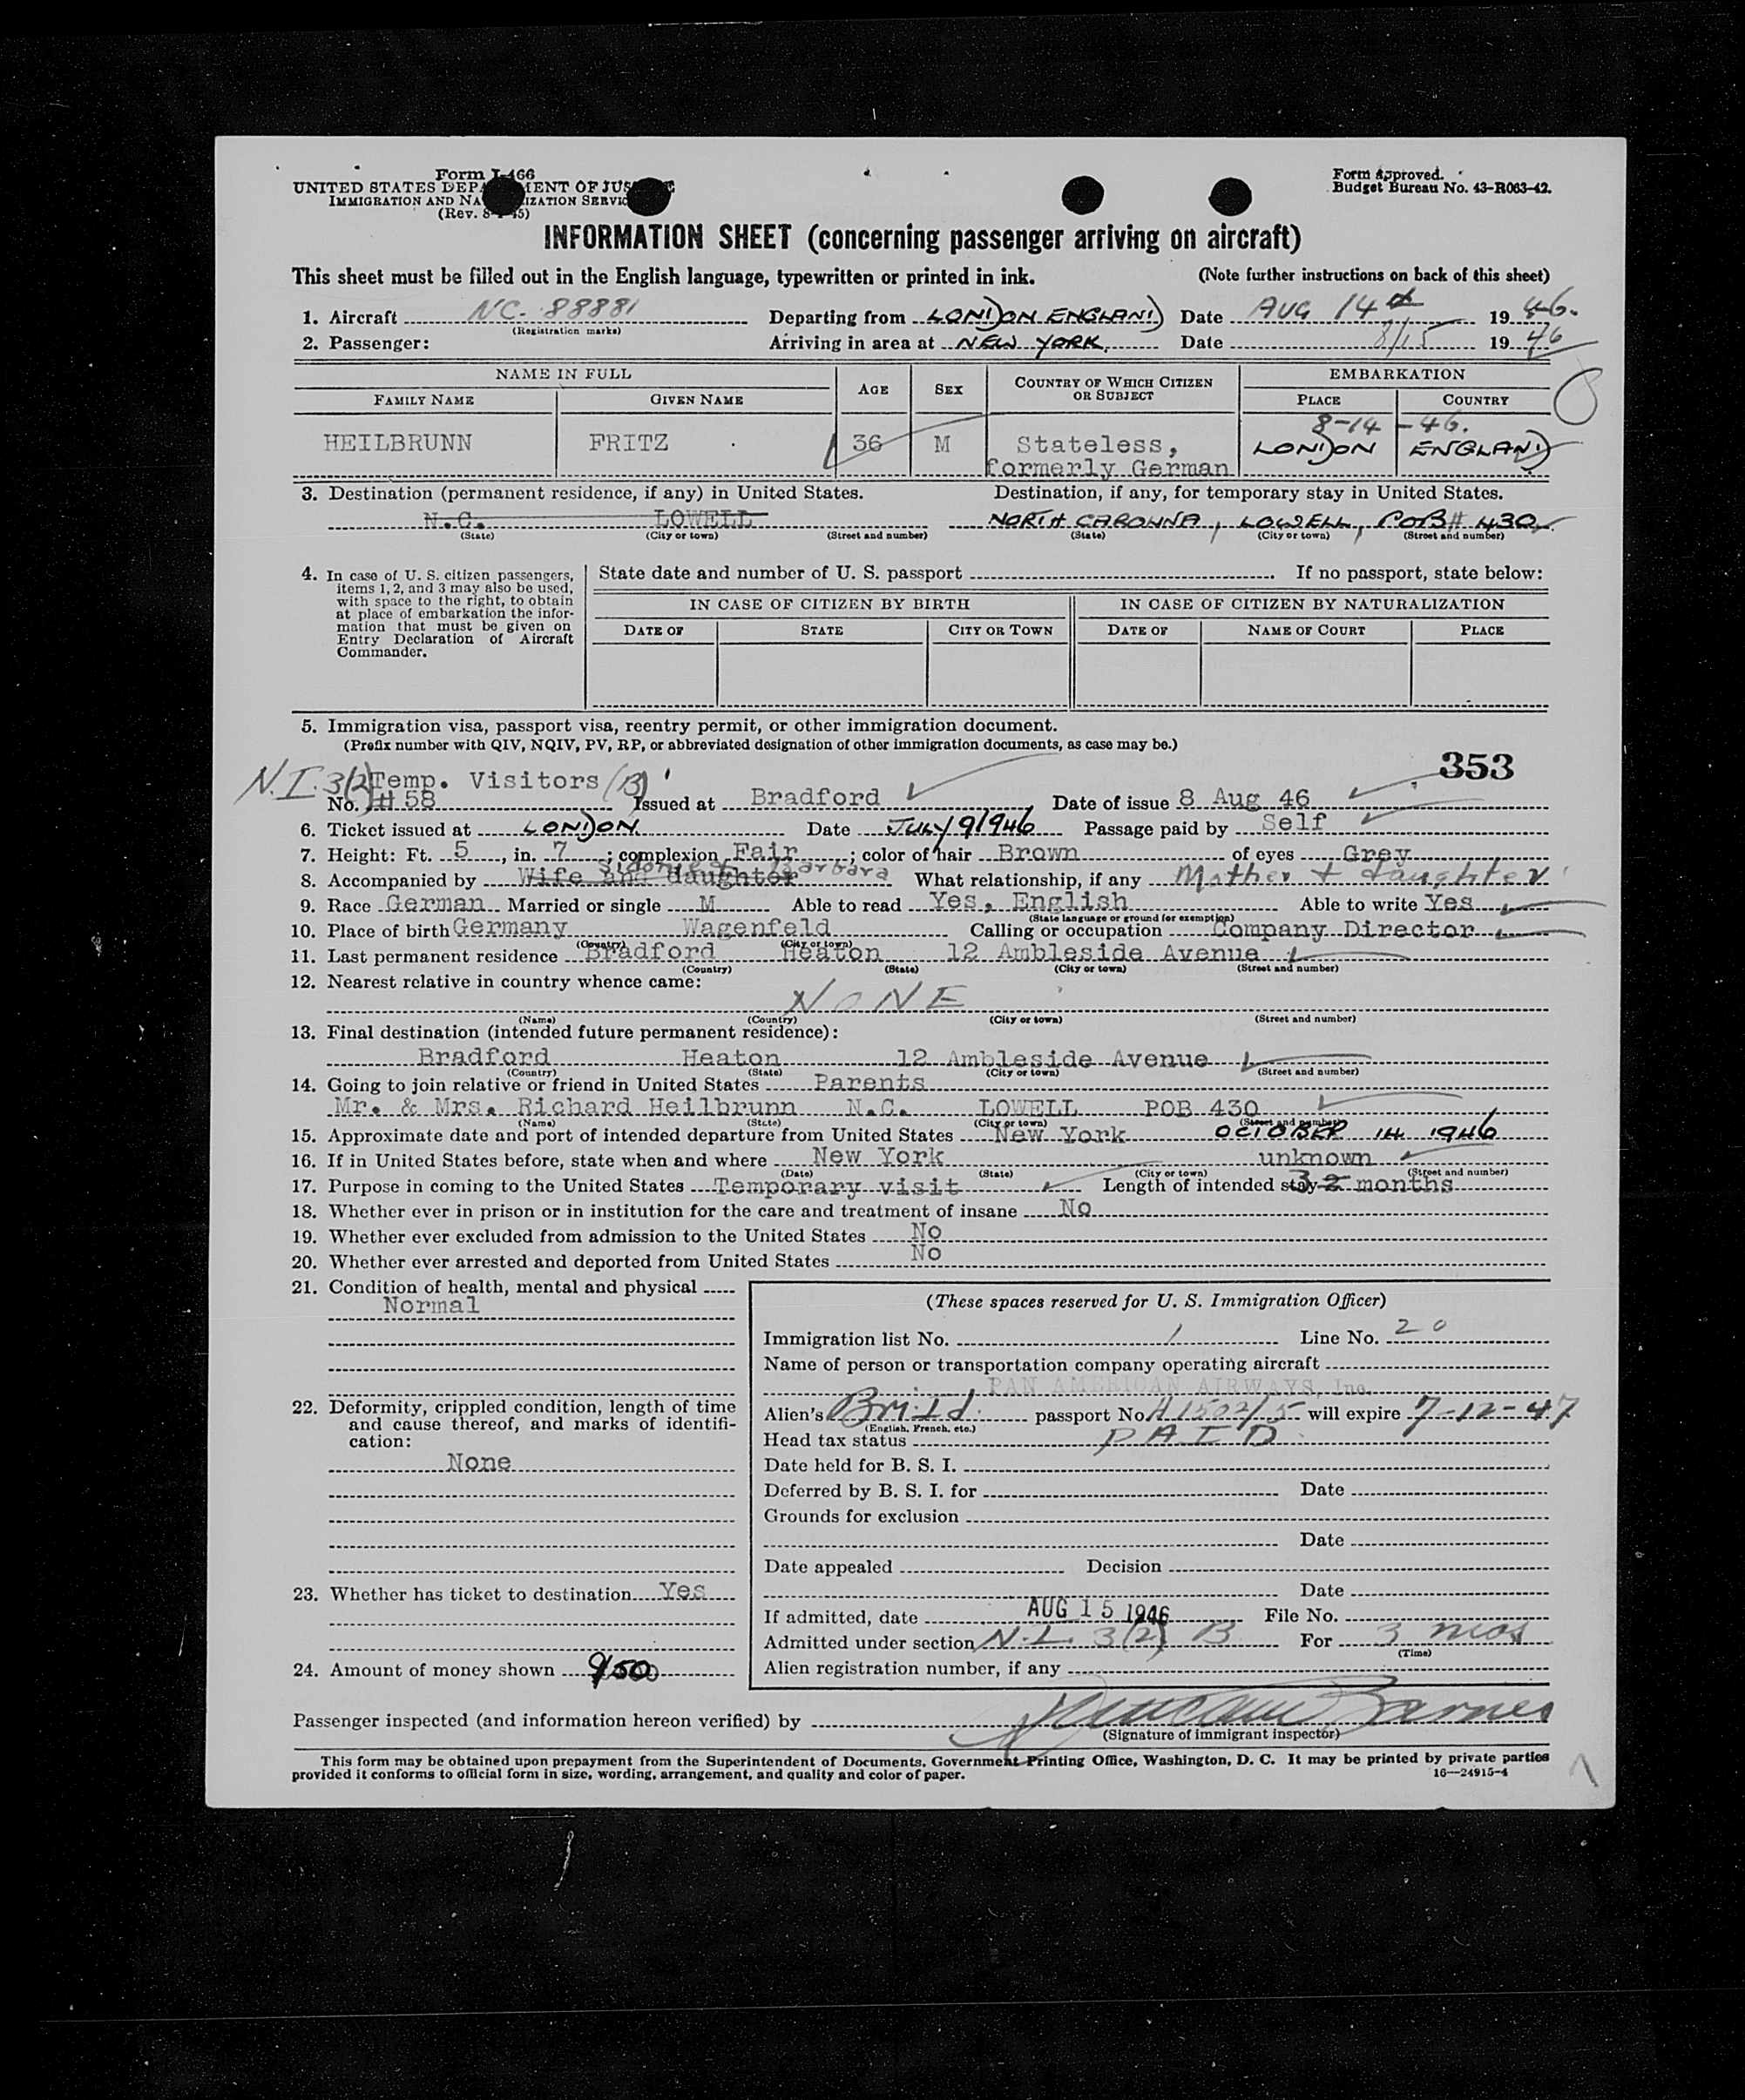 Form I-466
UNITED STATES DEPARTMENT OF JUSTICE
IMMIGRATION AND NATURALIZATION SERVICE
(Rev. 8-1-45)
Form approved.
Budget Bureau No. 43-R063-42.
INFORMATION SHEET (concerning passenger arriving on aircraft)
This sheet must be filled out in the English language, typewritten or printed in ink. (Note further instructions on back of this sheet)
1. Aircraft NC-88881 Departing from LONDON ENGLAND Date AUG 14th 1946.
(Registration marks)
2. Passenger: Arriving in area at NEW YORK. Date 8/15 1946
NAME IN FULL AGE SEX COUNTRY OF WHICH CITIZEN OR SUBJECT EMBARKATION
FAMILY NAME GIVEN NAME PLACE COUNTRY
8-14-46.
HEILBRUNN FRITZ 36 M Stateless, LONDON ENGLAND
formerly German
3. Destination (permanent residence, if any) in United States. Destination, if any, for temporary stay in United States.
N.C. LOWELL NORTH CAROLINA, LOWELL, POB# 430
(State) (City or town) (Street and number) (State) (City or town) (Street and number)
4. In case of U. S. citizen passengers, items 1, 2, and 3 may also be used, with space to the right, to obtain at place of embarkation the information that must be given on Entry Declaration of Aircraft Commander.
State date and number of U. S. passport If no passport, state below:
IN CASE OF CITIZEN BY BIRTH IN CASE OF CITIZEN BY NATURALIZATION
DATE OF STATE CITY OR TOWN DATE OF NAME OF COURT PLACE
5. Immigration visa, passport visa, reentry permit, or other immigration document.
(Prefix number with QIV, NQIV, PV, RP, or abbreviated designation of other immigration documents, as case may be.)
353
N.I. 3(2) Temp. Visitors (B)
No. # 58 Issued at Bradford Date of issue 8 Aug 46
6. Ticket issued at LONDON Date JULY 9 1946 Passage paid by Self
7. Height: Ft. 5, in. 7; complexion Fair; color of hair Brown of eyes Grey
8. Accompanied by Wife and daughter Barbara What relationship, if any Mother + daughter
9. Race German Married or single M Able to read Yes, English Able to write Yes
(State language or ground for exemption)
10. Place of birth Germany Wagenfeld Calling or occupation Company Director
(Country) (City or town)
11. Last permanent residence Bradford Heaton 12 Ambleside Avenue
(Country) (State) (City or town) (Street and number)
12. Nearest relative in country whence came:
NONE
(Name) (Country) (City or town) (Street and number)
13. Final destination (intended future permanent residence):
Bradford Heaton 12 Ambleside Avenue
(Country) (State) (City or town) (Street and number)
14. Going to join relative or friend in United States Parents
Mr. & Mrs. Richard Heilbrunn N.C. LOWELL POB 430
(Name) (State) (City or town) (Street and number)
15. Approximate date and port of intended departure from United States New York OCTOBER 14 1946
16. If in United States before, state when and where New York unknown
(Date) (State) (City or town) (Street and number)
17. Purpose in coming to the United States Temporary visit Length of intended stay 3 2 months
18. Whether ever in prison or in institution for the care and treatment of insane No
19. Whether ever excluded from admission to the United States No
20. Whether ever arrested and deported from United States No
21. Condition of health, mental and physical
Normal
22. Deformity, crippled condition, length of time and cause thereof, and marks of identification:
None
23. Whether has ticket to destination Yes
24. Amount of money shown 9/500
(These spaces reserved for U. S. Immigration Officer)
Immigration list No. 1 Line No. 20
Name of person or transportation company operating aircraft
PAN AMERICAN AIRWAYS, Inc.
Alien's Br. Id. passport No. will expire 7-12-47
(English, French, etc.)
Head tax status PAID
Date held for B. S. I.
Deferred by B. S. I. for Date
Grounds for exclusion
Date
Date appealed Decision
Date
If admitted, date AUG 15 1946 File No.
Admitted under section N.I. 3(2) B For 3 mos
(Time)
Alien registration number, if any
Passenger inspected (and information hereon verified) by Barnes
(Signature of immigrant inspector)
This form may be obtained upon prepayment from the Superintendent of Documents, Government Printing Office, Washington, D. C. It may be printed by private parties
provided it conforms to official form in size, wording, arrangement, and quality and color of paper. 16—24915-4